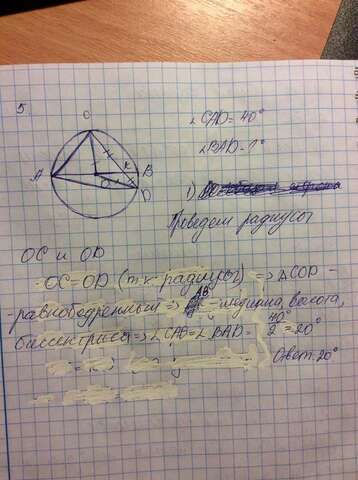 5.
C
∠CAD = 40°
∠BAD - ?
K
A
B
O
D
1)
Проведем радиусы
OC и OD
OC=OD (т.к. радиусы) => △COD -
- равнобедренный => AB - медиана, высота,
биссектриса => ∠CAB = ∠BAD = 40°/2 = 20°
Ответ: 20°